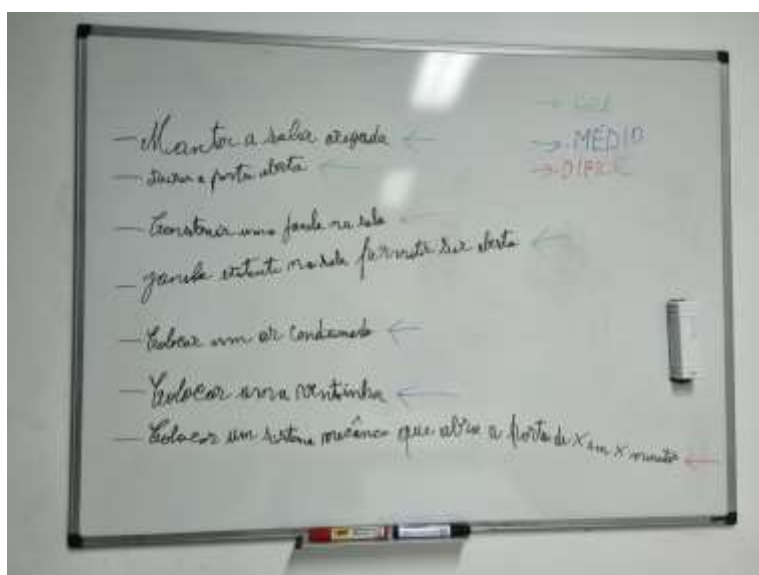 → MÉDIO
→ DIFÍCIL
— Manter a sala arejada ←
— Deixar a porta aberta ←
— Construir uma janela na sala ←
— Janela existente na sala permitir ser aberta ←
— Colocar um ar condicionado ←
— Colocar uma ventoinha ←
— Colocar um sistema mecânico que abre a porta de x em x minutos ←